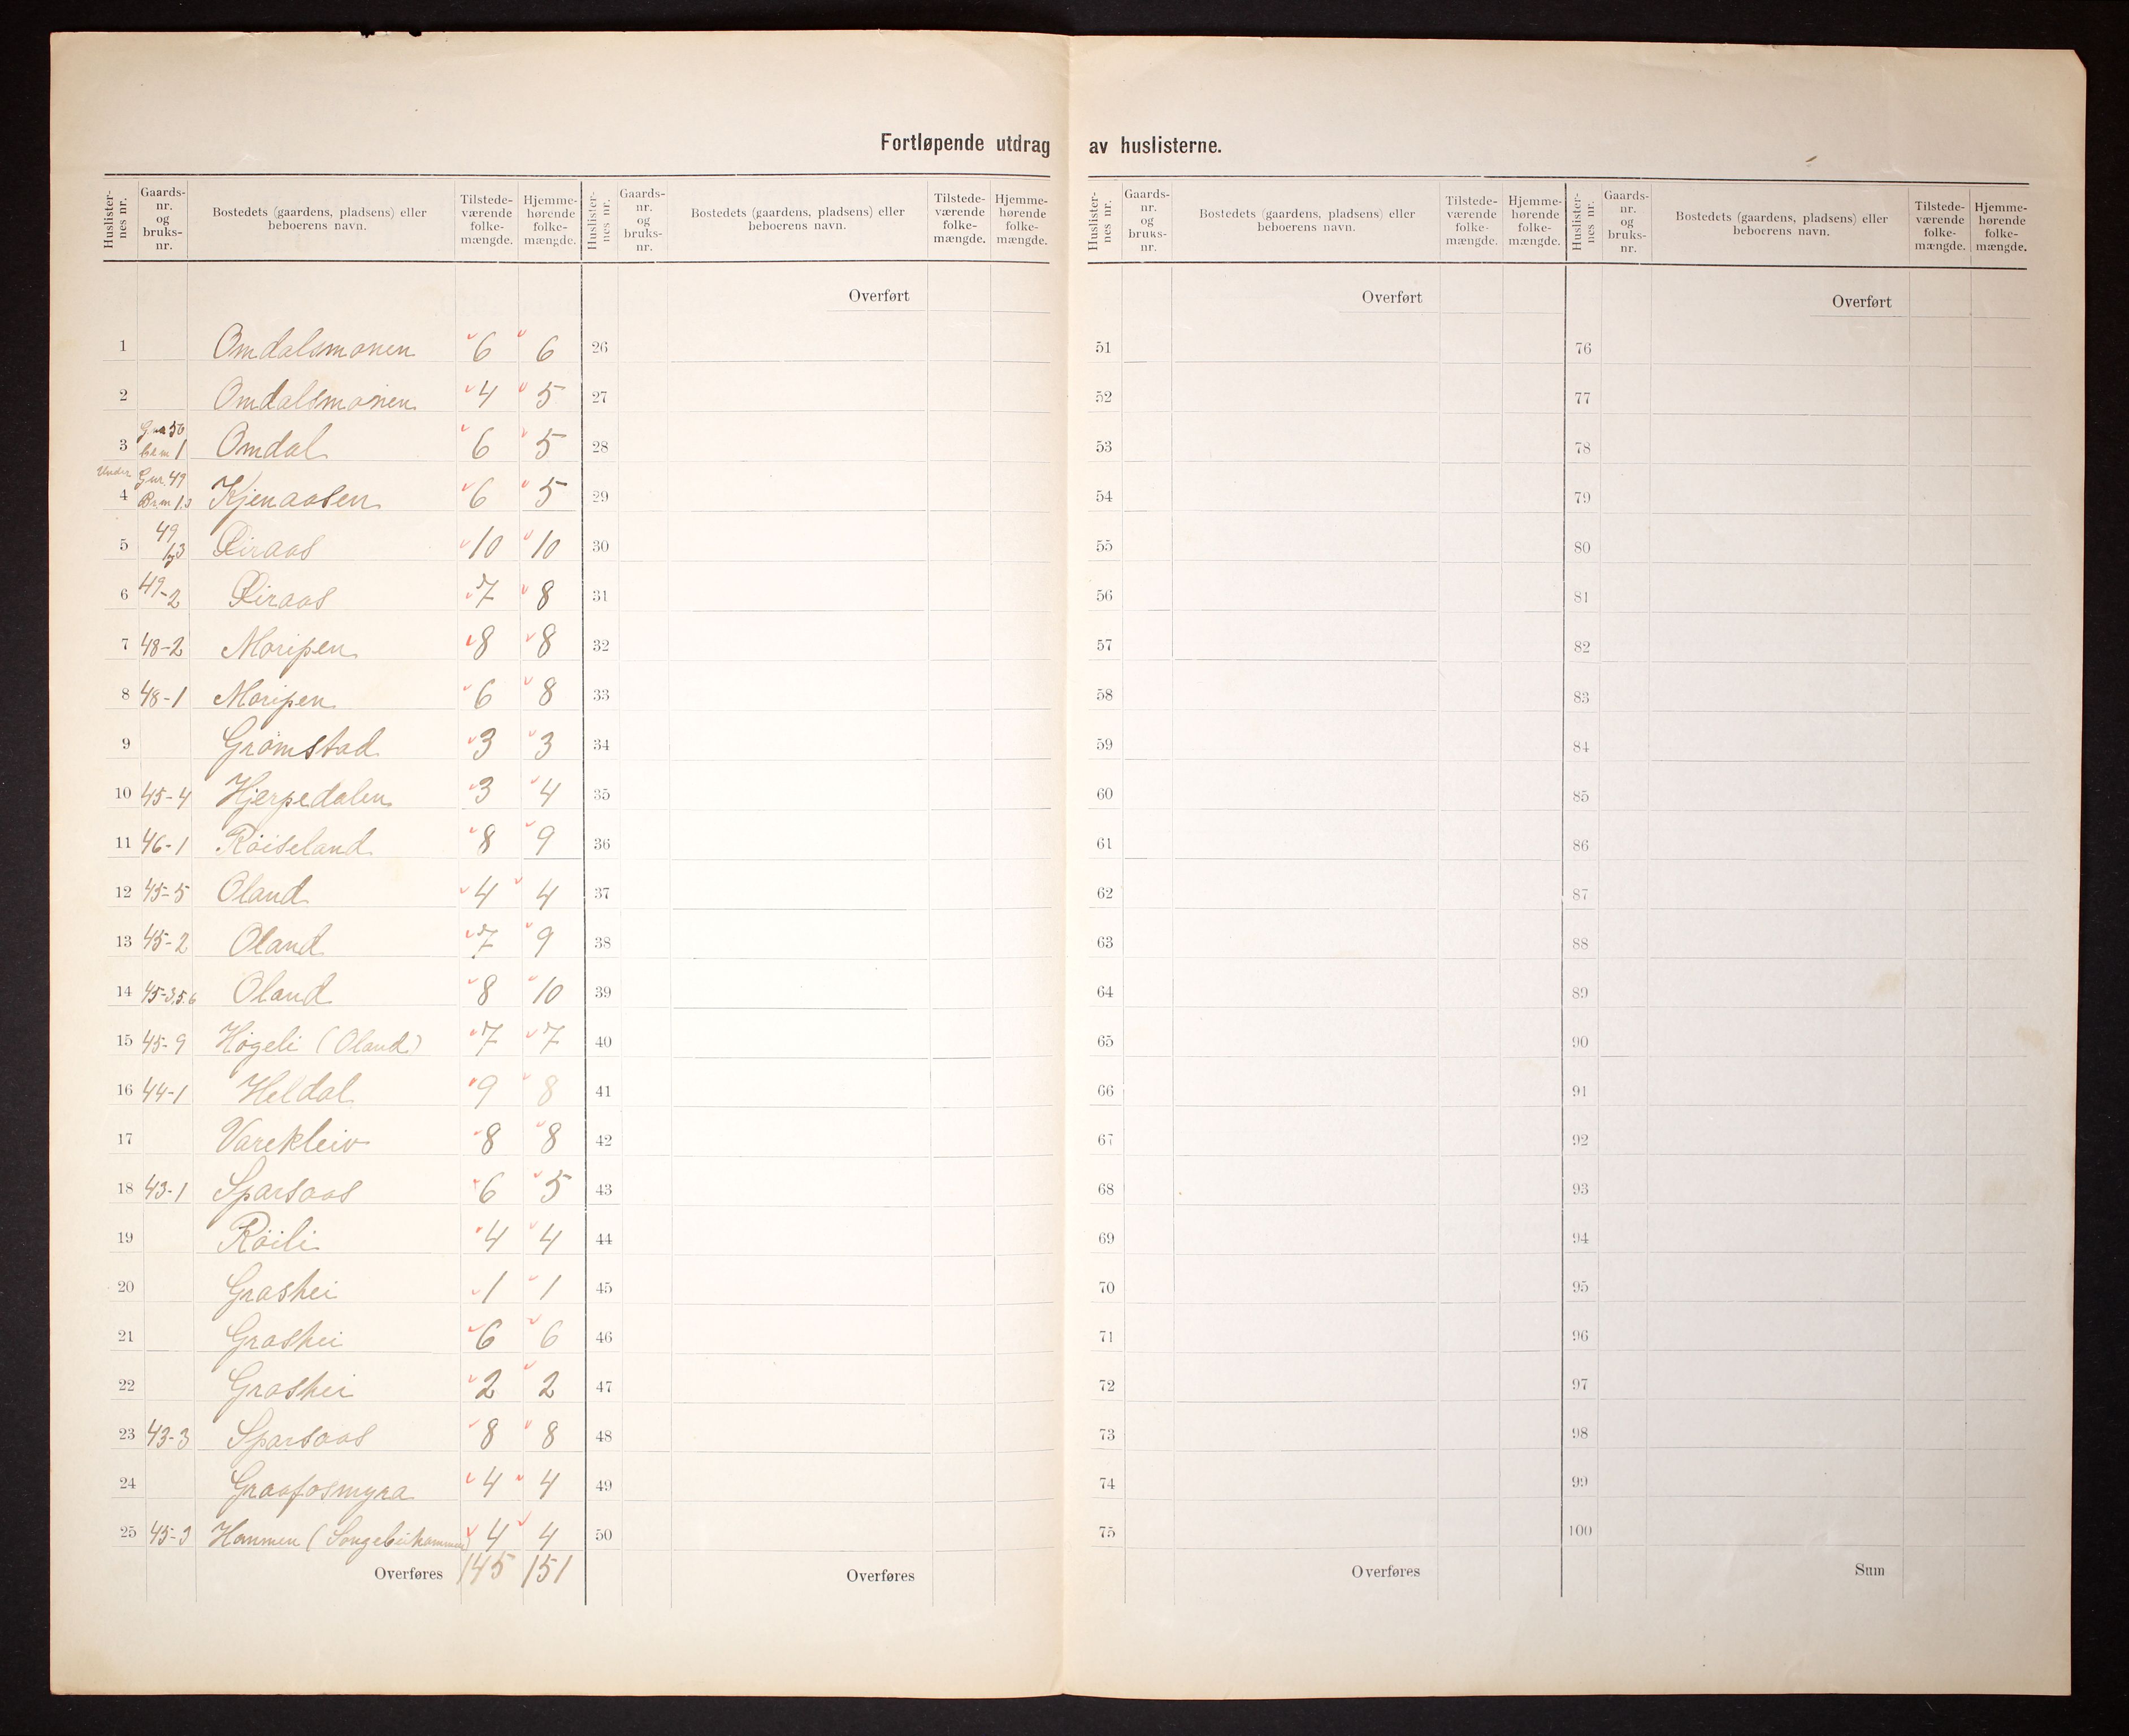 Fortløpende utdrag av huslisterne.
Huslisternes nr. Gaards-nr. og bruks-nr. Bostedets (gaardens, pladsens) eller beboerens navn. Tilstede-værende folke-mængde. Hjemme-hørende folke-mængde.
Huslister-nes nr. Gaards-nr. og bruks-nr. Bostedets (gaardens, pladsens) eller beboerens navn. Tilstede-værende folke-mængde. Hjemme-hørende folke-mængde.
Huslister-nes nr. Gaards-nr. og bruks-nr. Bostedets (gaardens, pladsens) eller beboerens navn. Tilstede-værende folke-mængde. Hjemme-hørende folke-mængde.
Huslister-nes nr. Gaards-nr. og bruks-nr. Bostedets (gaardens, pladsens) eller beboerens navn. Tilstede-værende folke-mængde. Hjemme-hørende folke-mængde.
Overført Overført Overført
1 Omdalsmonen 6 6 26 51 76
2 Omdalsmonen 4 5 27 52 77
3 1 Omdal 6 5 28 53 78
Under Gnr. 49
4 Kjenaasen 6 5 29 54 79
5 49 Liraas 10 10 30 55 80
6 49-2 Liraas 7 8 31 56 81
7 48-2 Moripen 8 8 32 57 82
8 48-1 Moripen 6 8 33 58 83
9 Grømstad 3 3 34 59 84
10 45-4 Hjerpedalen 3 4 35 60 85
11 46-1 Røiseland 8 9 36 61 86
12 45-5 Oland 4 4 37 62 87
13 45-2 Oland 7 9 38 63 88
14 45-3,5,6 Oland 8 10 39 64 89
15 45-9 Høgeli (Oland) 7 7 40 65 90
16 44-1 Heldal 9 8 41 66 91
17 Varekleiv 8 8 42 67 92
18 43-1 Sparsaas 6 5 43 68 93
19 Røili 4 4 44 69 94
20 Grashei 1 1 45 70 95
21 Grashei 6 6 46 71 96
22 Grashei 2 2 47 72 97
23 43-3 Sparsaas 8 8 48 73 98
24 Graafosmyra 4 4 49 74 99
25 45-3 Hammen 4 4 50 75 100
Overføres 145 151 Overføres Overføres Sum